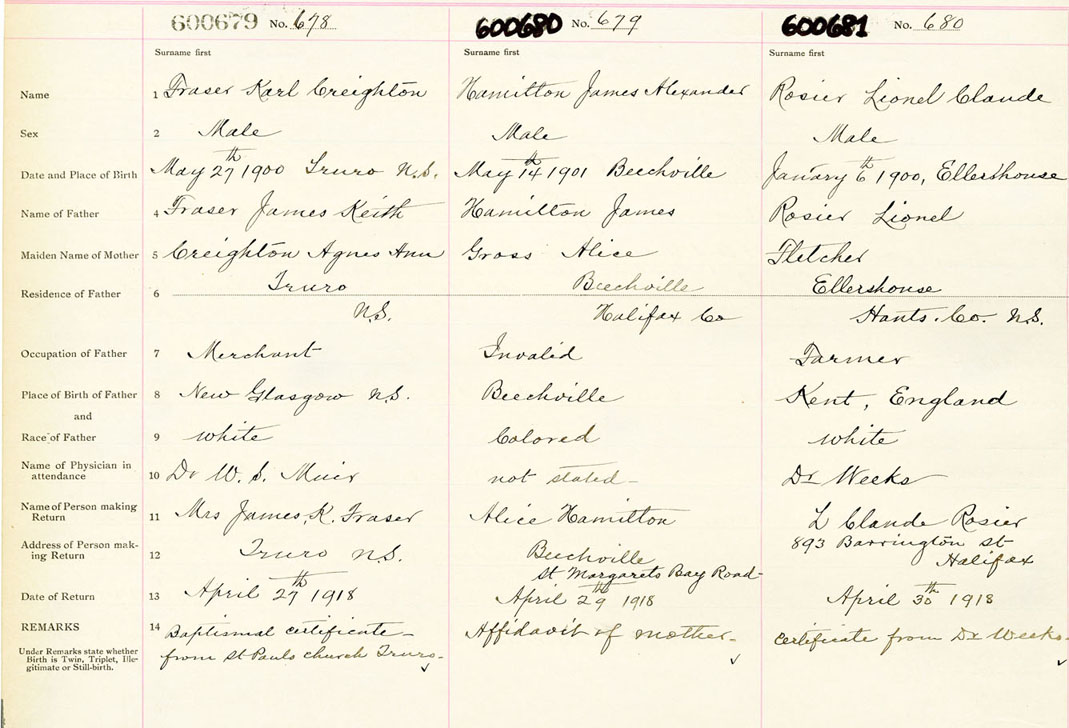 600679 No. 678 600680 No. 679 600681 No. 680
Surname first Surname first Surname first
Name 1 Fraser Karl Creighton Hamilton James Alexander Rosier Lionel Claude
Sex 2 Male Male Male
Date and Place of Birth 3 May 27th 1900 Truro N.S. May 14th 1901 Beechville January 6th 1900, Ellershouse
Name of Father 4 Fraser James Keith Hamilton James Rosier Lionel
Maiden Name of Mother 5 Creighton Agnes Ann Gross Alice Fletcher
Residence of Father 6 Truro Beechville Ellershouse
N.S. Halifax Co Hants. Co. N.S.
Occupation of Father 7 Merchant Invalid Farmer
Place of Birth of Father 8 New Glasgow N.S. Beechville Kent, England
and
Race of Father 9 white Colored white
Name of Physician in
attendance 10 Dr W. S. Muir not stated- Dr Weeks
Name of Person making
Return 11 Mrs James, K. Fraser Alice Hamilton L Claude Rosier
Address of Person mak-
ing Return 12 Truro N.S. Beechville 893 Barrington St
St Margarets Bay Road- Halifax
Date of Return 13 April 27th 1918 April 29th 1918 April 30th 1918
REMARKS 14 Baptismal certificate- Affidavit of mother- Certificate from Dr Weeks.
Under Remarks state whether
Birth is Twin, Triplet, Ille-
gitimate or Still-birth.
from St Pauls church Truro-